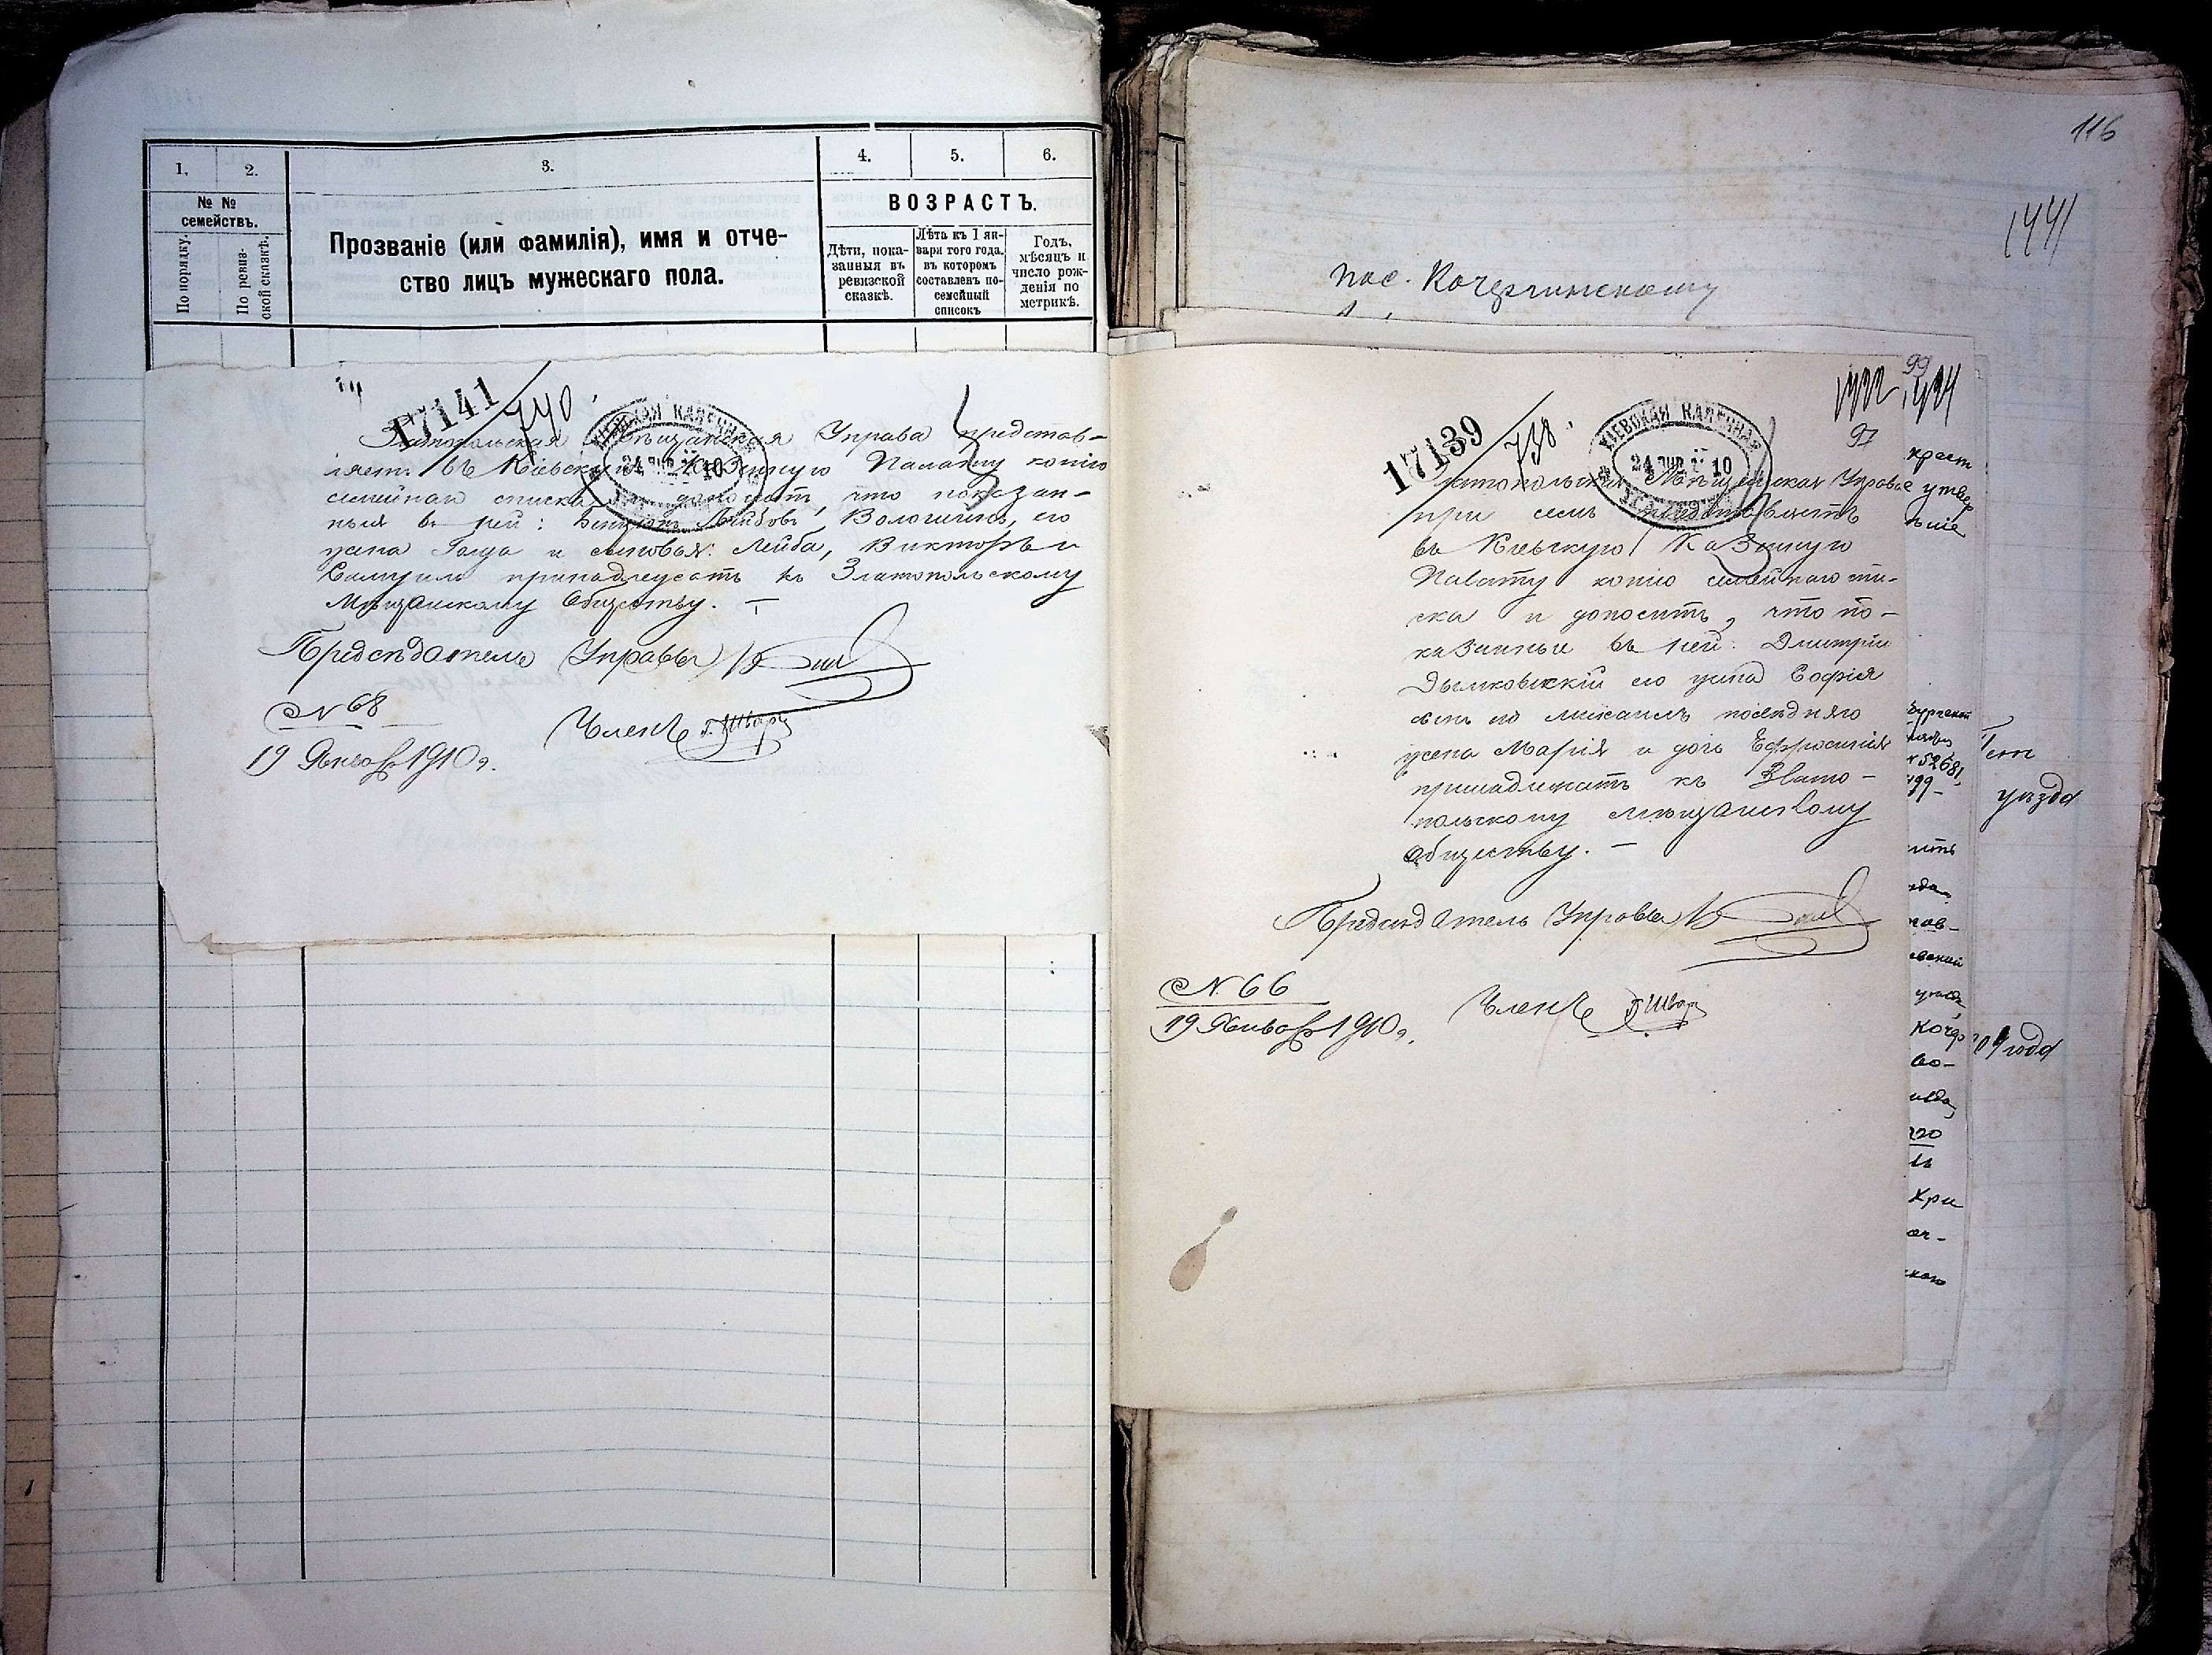 1.
2.
3.
4.
5.
6.
№ №
семействъ.
По порядку.
По ревиз-
ской сказкѣ.
Прозваніе (или фамилія), имя и отче-
ство лицъ мужескаго пола.
ВОЗРАСТЪ.
Дѣти, пока-
занныя въ
ревизской
сказкѣ.
Лѣта къ 1 ян-
варя того года,
въ которомъ
составленъ по-
семейный
списокъ
Годъ,
мѣсяцъ и
число рож-
денія по
метрикѣ.
17141
740.
КІЕВСКАЯ КАЗЕННАЯ
24 ЯНВ 10
Златопольская Мѣщанская Управа представ-
ляетъ въ Кіевскую Казенную Палату копію
семейнаго списка и доноситъ, что показан-
ныя въ ней: Лейбовъ, его
жена Голда и сыновья: Лейба, Викторъ и
Самуилъ принадлежатъ къ Златопольскому
Мѣщанскому Обществу. —
Предсѣдатель Управы
№ 68
19 Января 1910 г.
Членъ Г. Шварц
116
1441
пос. Кочержинскому
99
97
17139
738.
КІЕВСКАЯ КАЗЕННАЯ
24 ЯНВ 10
Златопольская Мѣщанская Управа
при семъ представляетъ
въ Кіевскую Казенную
Палату копію семейнаго спи-
ска и доноситъ, что по-
казанные въ ней: Дмитрій
Дымковскій его жена Софія
сынъ его Михаилъ послѣдняго
жена Марія и дочь Ефросинія
принадлежатъ къ Злато-
польскому мѣщанскому
Обществу. —
Предсѣдатель Управы
№ 66
19 Января 1910 г.
Членъ Г. Шварц
крест
№ 52681
199-
уѣзда
09 года